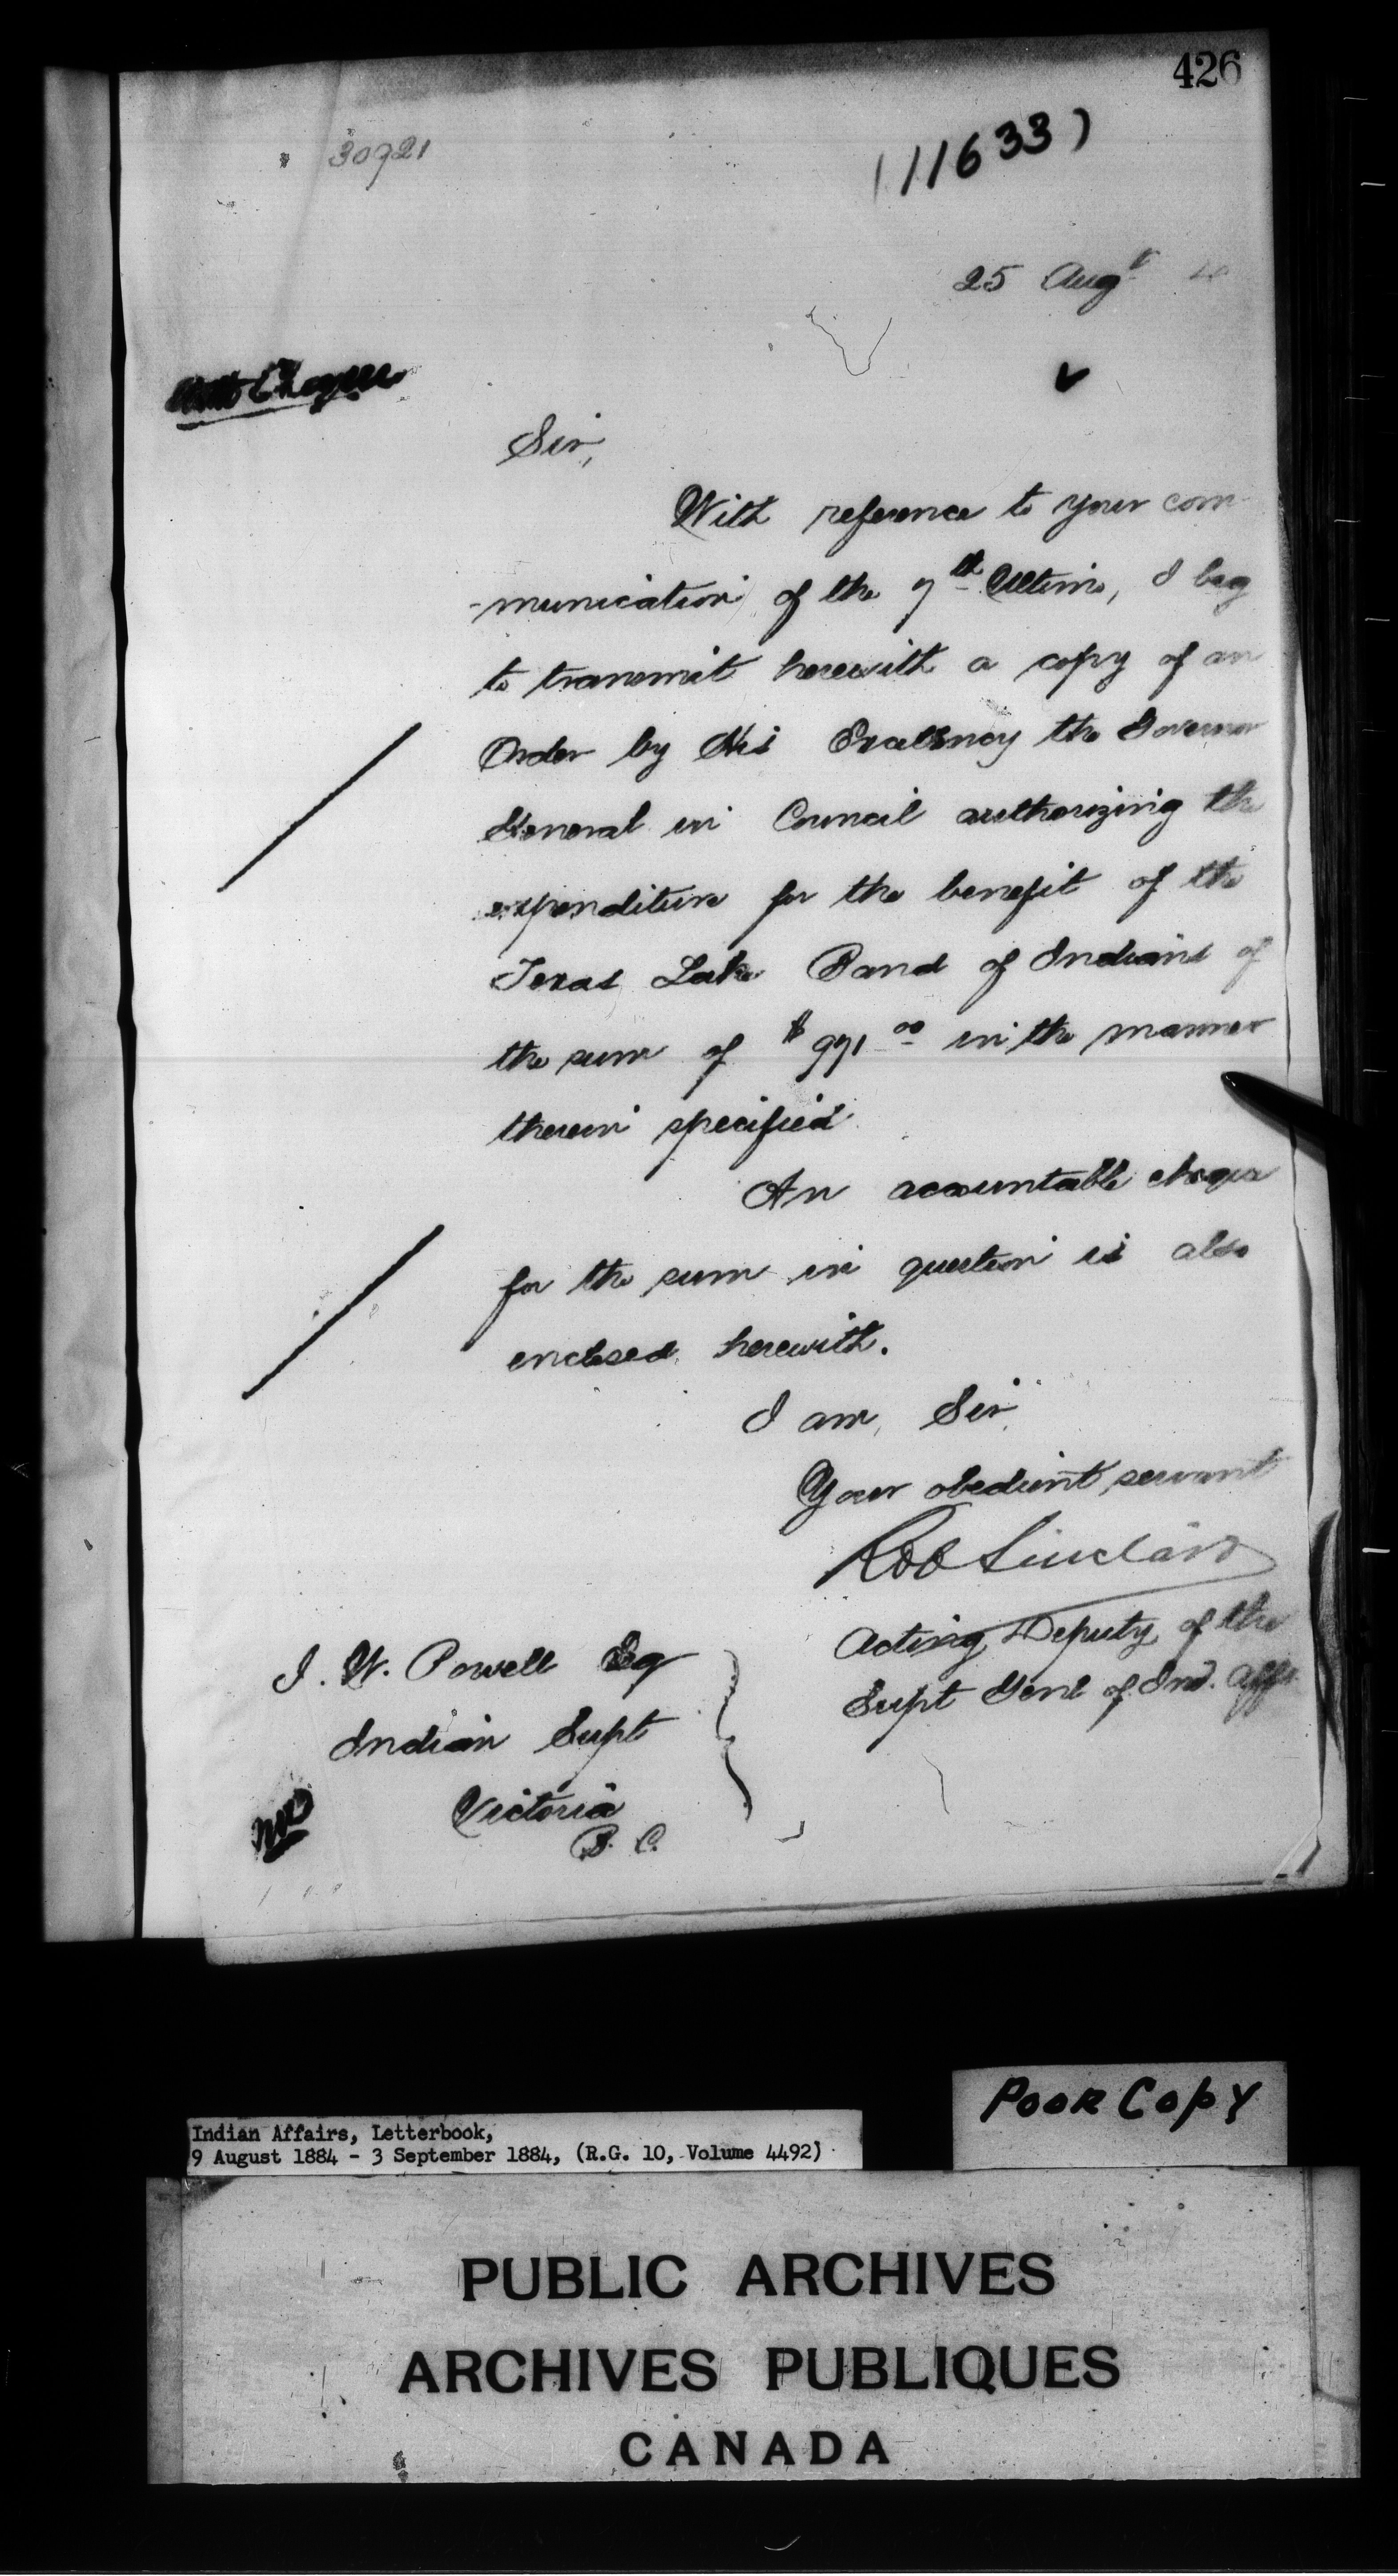 426
30921
(11633)
25 Augt 4
With Cheque
Sir,
With reference to your com-
-munication of the 7th Ultimo, I beg
to transmit herewith a copy of an
Order by His Excellency the Governor
General in Council authorizing the
expenditure for the benefit of the
Texas Lake Band of Indians of
the sum of $971 00 in the manner
therein specified
An accountable cheque
for the sum in question is also
enclosed herewith.
I am, Sir,
Your obedient servant
Rob Sinclair
Acting Deputy of the
Supt Genl of Ind. Affs
I. W. Powell Esq
Indian Supt
Victoria
B. C.
Poor Copy
Indian Affairs, Letterbook,
9 August 1884 - 3 September 1884, (R.G. 10, Volume 4492)
PUBLIC ARCHIVES
ARCHIVES PUBLIQUES
CANADA